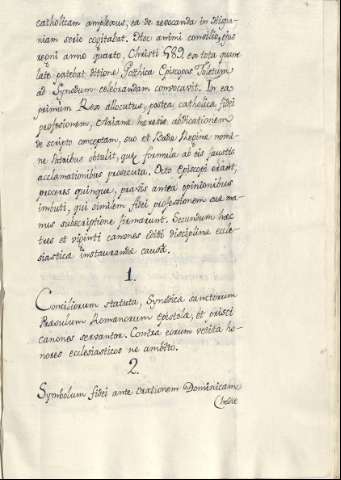 catholicam amplexus, ea de revocanda in Hispa-
niam serio cogitabat. Hec animi consilio, ejus
regni anno quarto, Christi 589. ex tota quam
late patebat ditione Gothica Episcopos Toletum
ad Synodum celebrandam convocavit. In ea
primùm Rex allocutus, postea, catholicæ fidei
professionem, Arianæ heresis abdicationem
de scripto conceptam, suo et Badæ Reginæ nomi-
ne Patribus obtulit, quæ formula ab eis faustis
acclamationibus prosecuta. Octo Episcopi erant,
proceres quinque, pravis antea opinionibus
imbuti, qui similem fidei professionem sua ma-
nus subscriptione firmarunt. Secundum hæc
tres et viginti canones editi disciplinæ eccle-
siasticæ instaurandæ causâ.
1.
Conciliorum statuta, Synodica sanctorum
Præsulum Romanorum epistola, et prisci
canones servantor. Contra eorum vetita ho-
nores ecclesiasticos ne ambito.
2.
Symbolum fidei ante orationem Dominicam